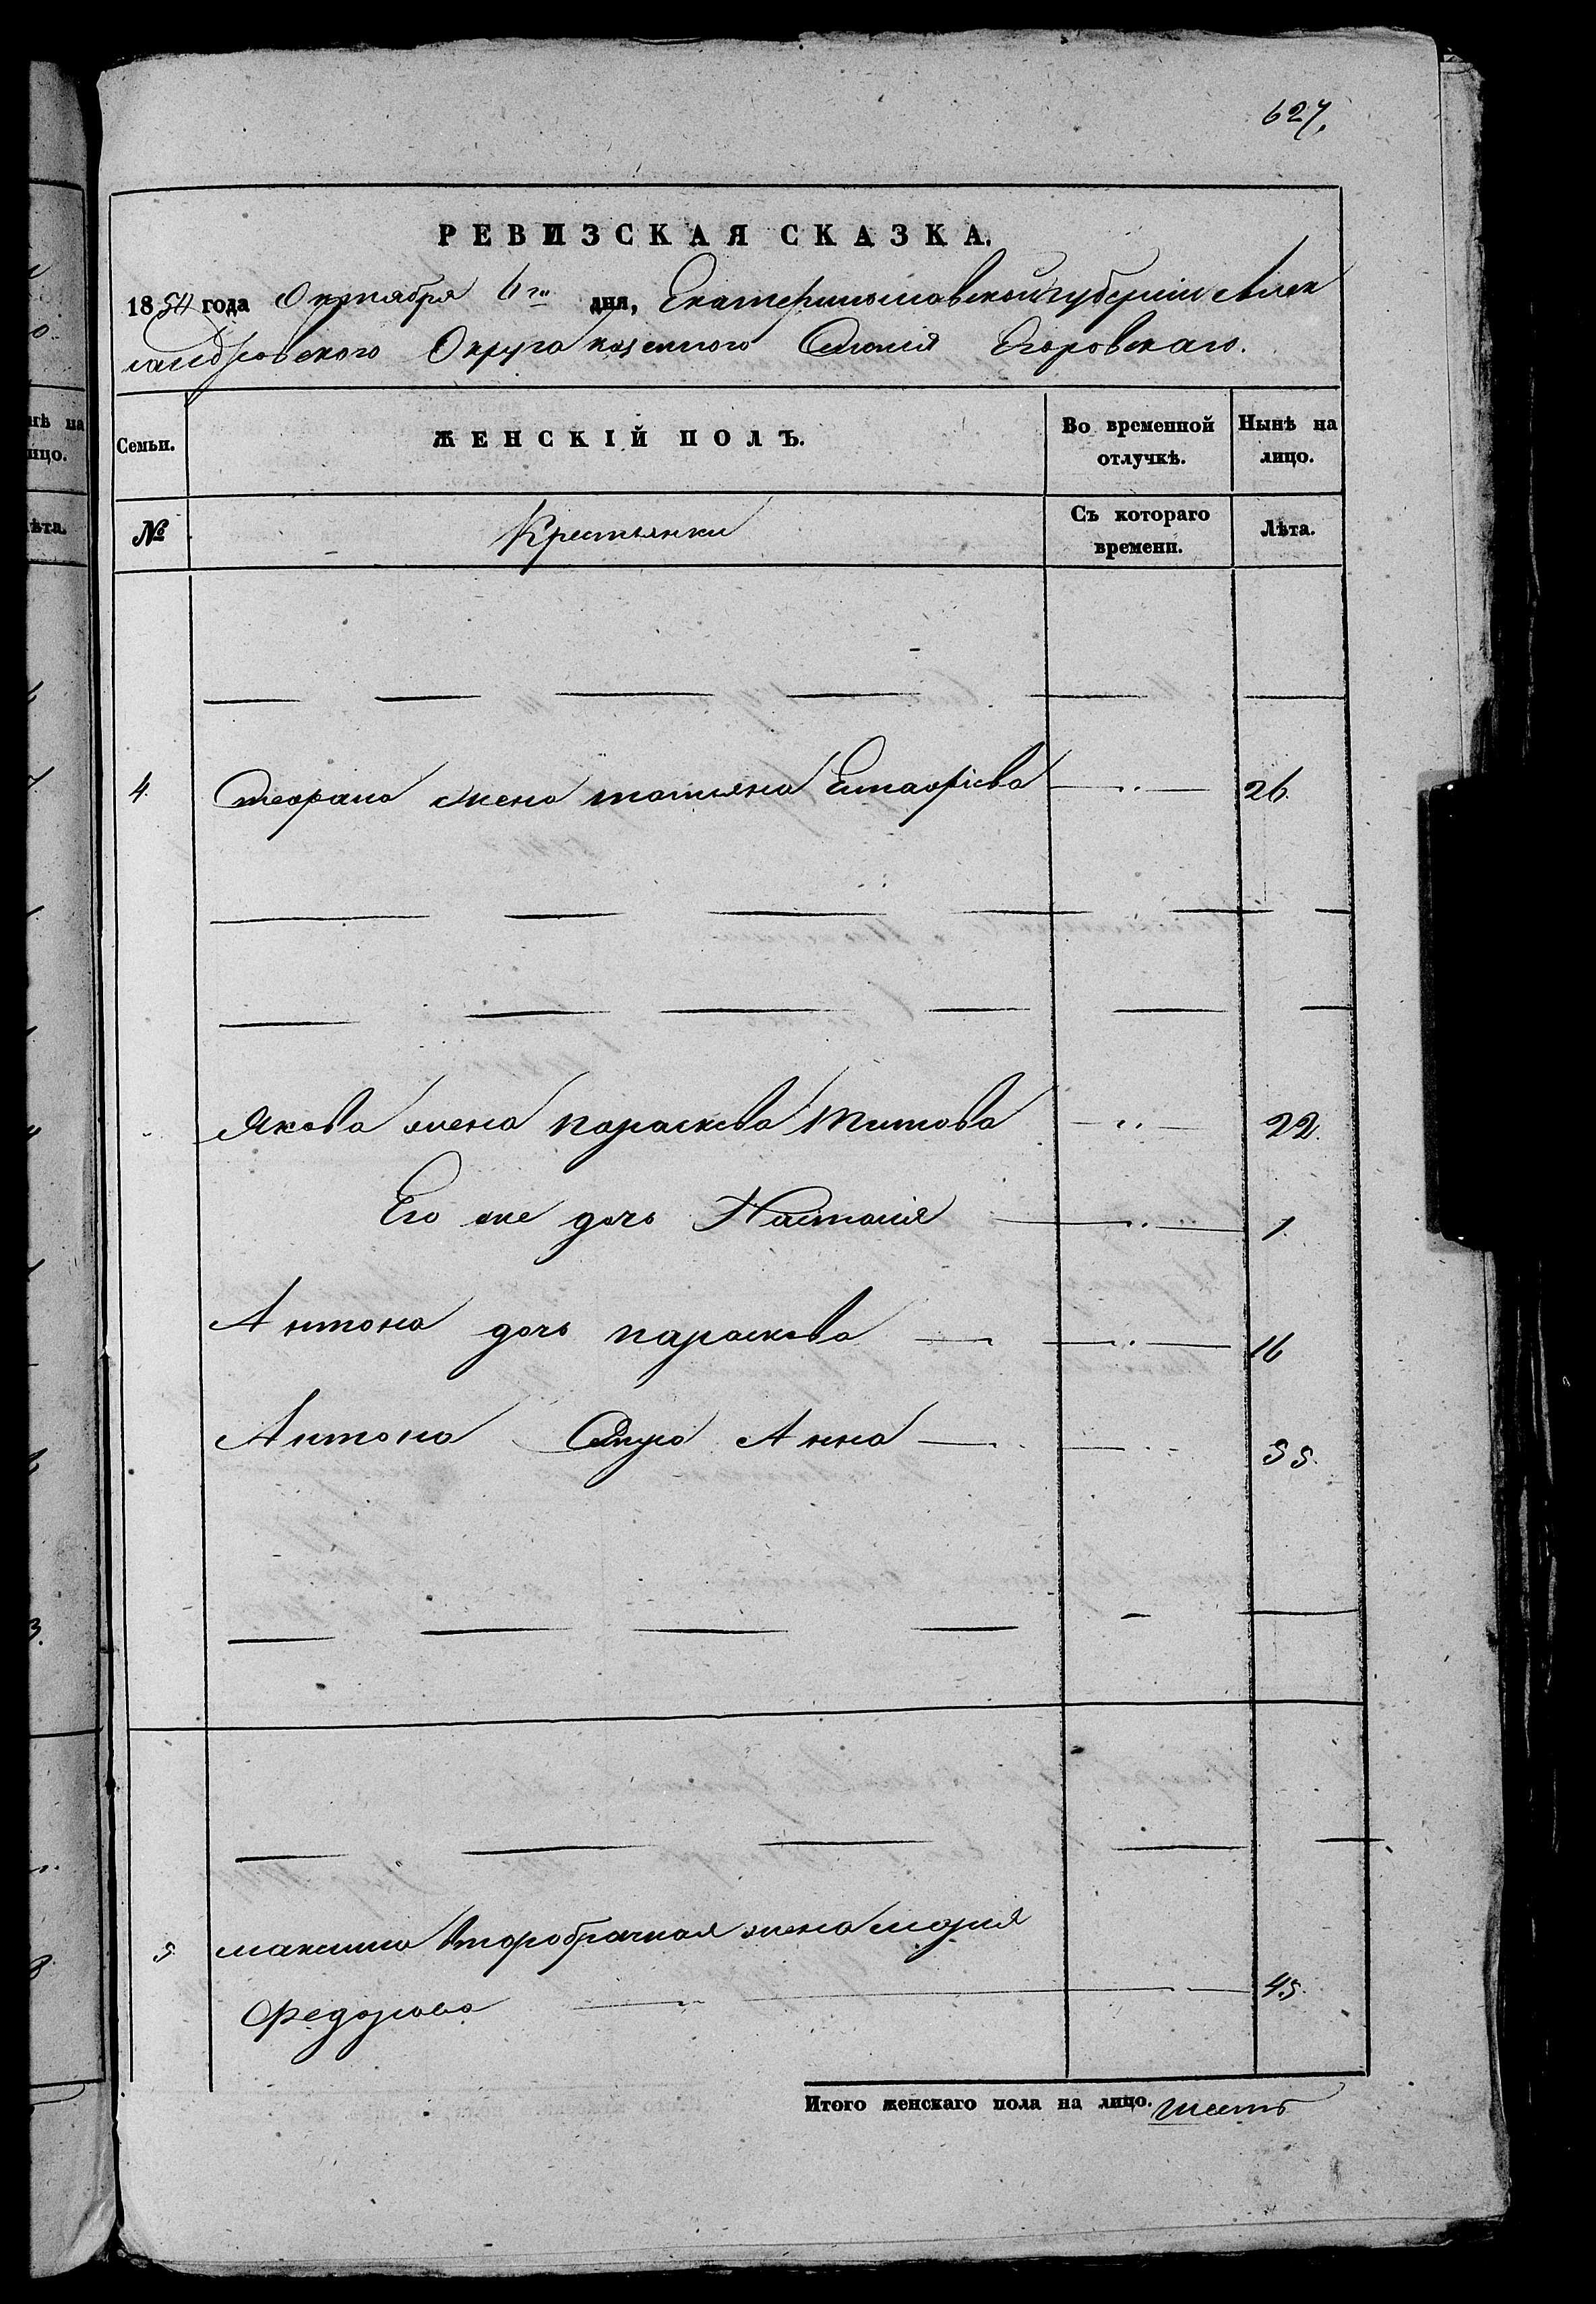 627.
РЕВИЗСКАЯ СКАЗКА.
1854 года Октября 6го дня, Екатеринославской губерніи Алек
сандровского Округа казенного Селенія Егоровскаго.
Семьи.
ЖЕНСКІЙ ПОЛЪ.
Во временной отлучкѣ.
Нынѣ на лицо.
№
Крестьянки
Съ котораго времени.
Лѣта.
4. жена татьяна Евтафіева 26.
Якова жена параскева Титова 22.
Его же дочь Настасія 1.
Антона дочь параскева 16
Антона Анна 55.
5 максима второбрачная жена марія
Федорова 45.
Итого женскаго пола на лицо. шесть